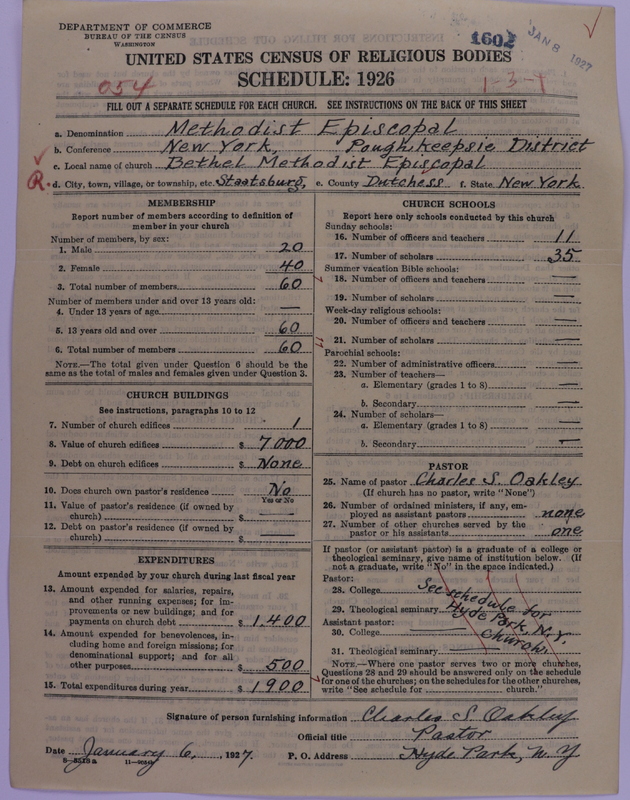 DEPARTMENT OF COMMERCE
BUREAU OF THE CENSUS
WASHINGTON
1602
JAN 8 1927
UNITED STATES CENSUS OF RELIGIOUS BODIES
SCHEDULE: 1926
054
1-3-1
FILL OUT A SEPARATE SCHEDULE FOR EACH CHURCH. SEE INSTRUCTIONS ON THE BACK OF THIS SHEET
a. Denomination Methodist Episcopal
b. Conference New York, Poughkeepsie District
c. Local name of church Bethel Methodist Episcopal
R. d. City, town, village, or township, etc. Staatsburg, e. County Dutchess f. State New York
MEMBERSHIP
Report number of members according to definition of
member in your church
Number of members, by sex:
1. Male 20
2. Female 40
3. Total number of members 60
Number of members under and over 13 years old:
4. Under 13 years of age —
5. 13 years old and over 60
6. Total number of members 60
NOTE.—The total given under Question 6 should be the
same as the total of males and females given under Question 3.
CHURCH BUILDINGS
See instructions, paragraphs 10 to 12
7. Number of church edifices 1
8. Value of church edifices $ 7000
9. Debt on church edifices $ None
10. Does church own pastor's residence No
Yes or No
11. Value of pastor's residence (if owned by
church) $ —
12. Debt on pastor's residence (if owned by
church) $ —
EXPENDITURES
Amount expended by your church during last fiscal year
13. Amount expended for salaries, repairs,
and other running expenses; for im-
provements or new buildings; and for
payments on church debt $ 1,400
14. Amount expended for benevolences, in-
cluding home and foreign missions; for
denominational support; and for all
other purposes $ 500
15. Total expenditures during year $ 1900
CHURCH SCHOOLS
Report here only schools conducted by this church
Sunday schools:
16. Number of officers and teachers 11
17. Number of scholars 35
Summer vacation Bible schools:
18. Number of officers and teachers —
19. Number of scholars —
Week-day religious schools:
20. Number of officers and teachers —
21. Number of scholars —
Parochial schools:
22. Number of administrative officers —
23. Number of teachers—
a. Elementary (grades 1 to 8) —
b. Secondary —
24. Number of scholars—
a. Elementary (grades 1 to 8) —
b. Secondary —
PASTOR
25. Name of pastor Charles S. Oakley
(If church has no pastor, write "None")
26. Number of ordained ministers, if any, em-
ployed as assistant pastors none
27. Number of other churches served by the
pastor or his assistants one
If pastor (or assistant pastor) is a graduate of a college or
theological seminary, give name of institution below. (If
not a graduate, write "No" in the space indicated.)
Pastor:
28. College See schedule for
29. Theological seminary Hyde Park, N.Y.
Assistant pastor:
30. College — church.
31. Theological seminary —
NOTE.—Where one pastor serves two or more churches,
Questions 28 and 29 should be answered only on the schedule
for one of the churches; on the schedules for the other churches,
write "See schedule for church."
Signature of person furnishing information Charles S. Oakley
Official title Pastor
Date January 6, 1927. P. O. Address Hyde Park, N.Y